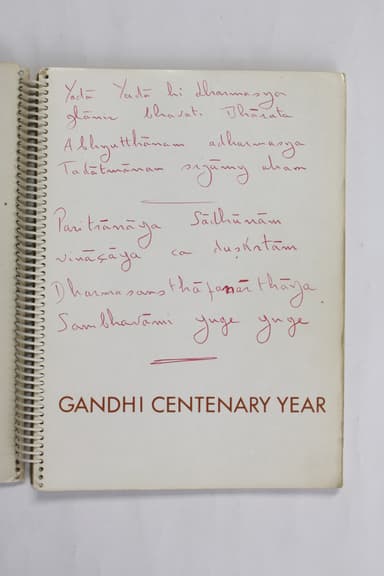 Yadā Yadā hi dharmasya
glānir bhavati Bhārata
Abhyutthānam adharmasya
Tadātmānam srjāmy aham
Paritrānāya Sādhūnām
vināçāya ca duskrtām
Dharmasamsthāpanārthāya
Sambhavāmi yuge yuge
GANDHI CENTENARY YEAR